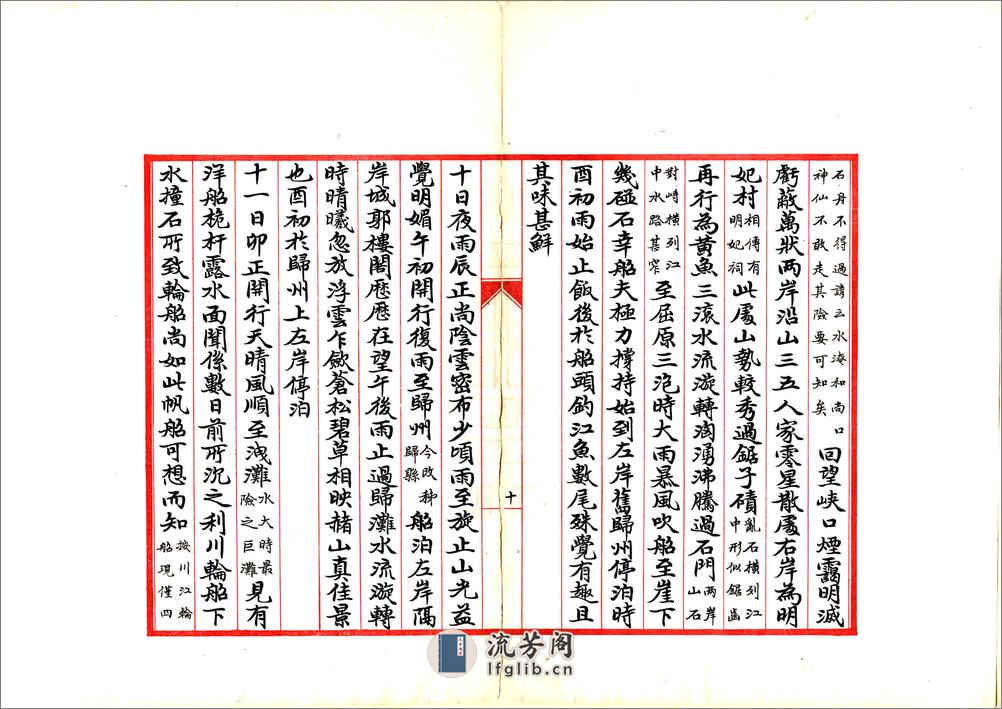 石舟不得過諺云水淹和尚口
神仙不敢走其險要可知矣
回望峽口煙靄明滅
虧蔽萬狀兩岸沿山三五人家零星散處右岸為明
妃村相傳有
明妃祠此處山勢較秀過鋸子磧亂石橫列江
中形似鋸齒
再行為黃魚三滾水流漩轉洶湧沸騰過石門兩岸
山石
對峙橫列江
中水路甚窄至屈原三沱時大雨暴風吹船至崖下
幾碰石幸船夫極力撐持始到左岸舊歸州停泊時
酉初雨始止飯後於船頭釣江魚數尾殊覺有趣且
其味甚鮮
十
十日夜雨辰正尚陰雲密布少頃雨至旋止山光益
覺明媚午初開行復雨至歸州今改秭
歸縣船泊左岸隔
岸城郭樓閣歷歷在望午後雨止過歸灘水流漩轉
時晴曦忽放浮雲乍斂蒼松碧草相映赭山真佳景
也酉初於歸州上左岸停泊
十一日卯正開行天晴風順至洩灘水大時最
險之巨灘見有
洋船桅杆露水面聞係數日前所沉之利川輪船下
水撞石所致輪船尚如此帆船可想而知按川江輪
船現僅四
流芳阁
lfglib.cn